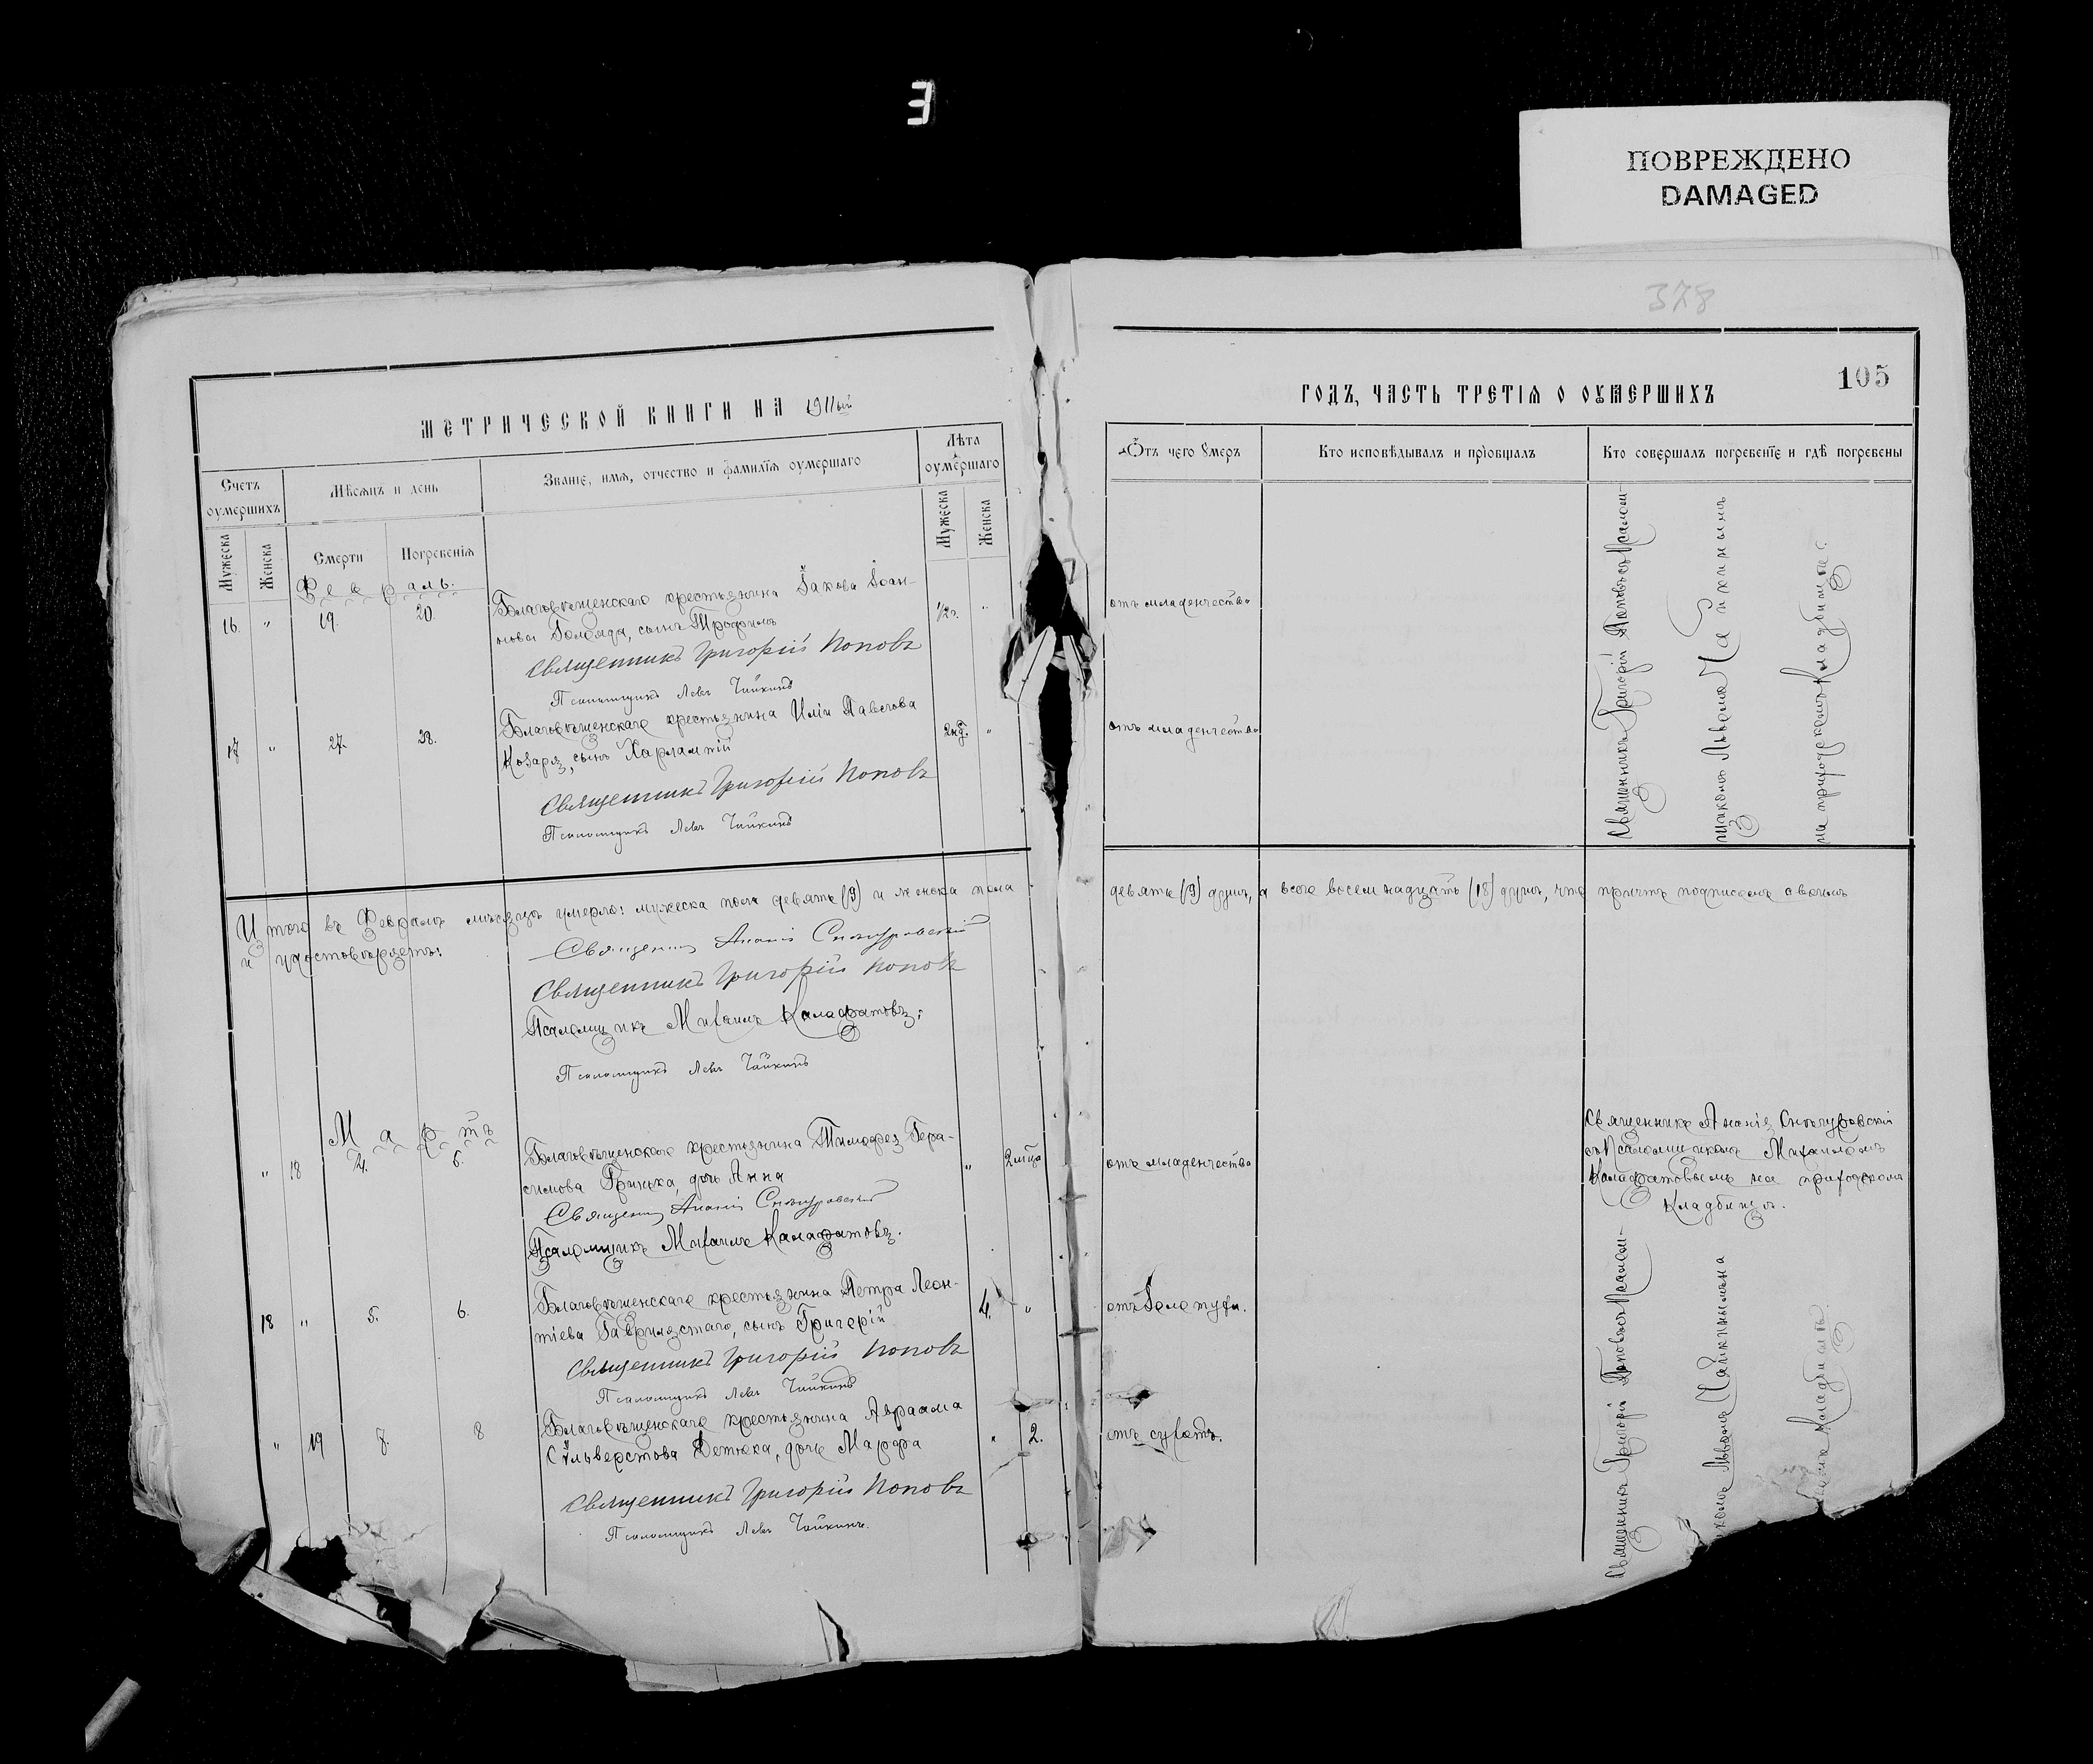 ПОВРЕЖДЕНО
DAMAGED
378
105
МЕТРИЧЕСКОЙ КНИГИ НА 1911ый
ГОДЪ, ЧАСТЬ ТРЕТІѦ О ОУМЕРШИХЪ
Счетъ оумершихъ
Мѣсѧцъ и день
Званіе, имѧ, отчество и фамиліѧ оумершаго
Лѣта оумершаго
Ѿтъ чего умеръ
Кто исповѣдывалъ и пріобщалъ
Кто совершалъ погребеніе и гдѣ погребены
Мужеска
Женска
Смерти
Погребеніѧ
Мужеска
Женска
Февраль.
16. " 19. 20.
Благовѣщенскаго крестьянина Іакова Іоан-
нова сынъ Трофимъ
1/2 г. "
отъ младенчества
Священникъ Григорій Поповъ
Псаломщикъ Левъ Чайкинъ
17 " 27. 28.
Благовѣщенскаго крестьянина Иліи Павлова
Козаря, сынъ Харлампій
2нд. "
отъ младенчества
Священникъ Григорій Поповъ
Псаломщикъ Левъ Чайкинъ
Священникъ Григорій Поповъ съ Псалом-
щикомъ Львомъ Чайкинымъ
на приходскомъ кладбищѣ.
Итого въ Февралѣ мѣсяцѣ умерло: мужеска пола девять (9) и женска пола
девять (9) душъ, а всего восемнадцать (18) душъ, что причтъ подписомъ своимъ
и удостовѣряетъ:
Священникъ Ананій Снѣгуровскій
Священникъ Григорій Поповъ
Псаломщикъ Михаилъ Калафатовъ;
Псаломщикъ Левъ Чайкинъ
Мартъ
" 18 4. 6.
Благовѣщенскаго крестьянина Тимофея Гера-
симова дочь Анна
" 2 мѣсца
отъ младенчества
Священникъ Ананій Снѣгуровскій
Псаломщикъ Михаилъ Калафатовъ.
Священникъ Ананія Снѣгуровскій
съ Псаломщикомъ Михаиломъ
Калафатовымъ на приходскомъ
кладбищѣ.
18 " 5. 6.
Благовѣщенскаго крестьянина Петра Леон-
тіева сынъ Григорій
4. "
Священникъ Григорій Поповъ
Псаломщикъ Левъ Чайкинъ
" 19 8. 8
Благовѣщенскаго крестьянина Авраама
Сѵльверстова Детюка, дочь Марфа
" 2.
отъ сухотъ.
Священникъ Григорій Поповъ
Псаломщикъ Левъ Чайкинъ.
Священникъ Григорій Поповъ съ Псалом-
Львомъ Чайкинымъ на
кладбищѣ.